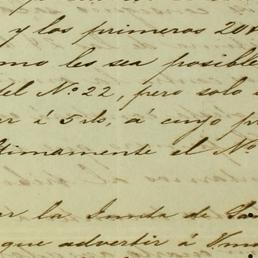 y los primeros 20
omo les sea posible
del N.º 22, pero solo
ar á 5 rls, á cuyo pr
ltimamente el N.º
ar la Junta de Sa
que advertir á Vmd